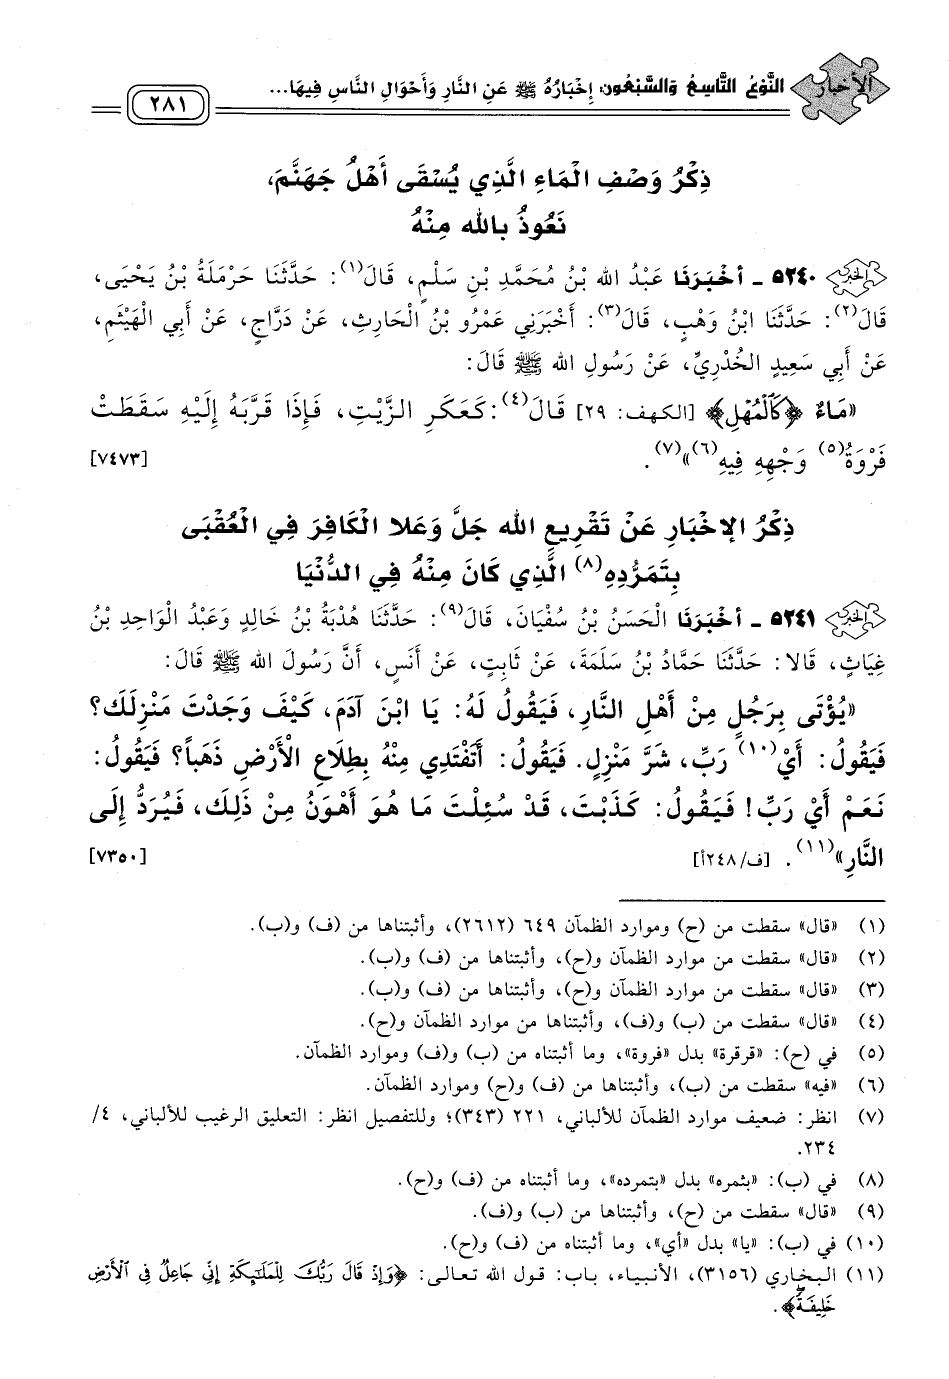 الأخبار النَّوْعُ التَّاسِعُ وَالسَّبْعُونَ: إِخْبَارُهُ ﷺ عَنِ النَّارِ وَأَحْوَالِ النَّاسِ فِيهَا... ٢٨١
ذِكْرُ وَصْفِ الْمَاءِ الَّذِي يُسْقَى أَهْلُ جَهَنَّمَ،
نَعُوذُ بِالله مِنْهُ
٥٢٤٠ - أَخْبَرَنَا عَبْدُ الله بْنُ مُحَمَّدِ بْنِ سَلْمٍ، قَالَ(١): حَدَّثَنَا حَرْمَلَةُ بْنُ يَحْيَى،
قَالَ(٢): حَدَّثَنَا ابْنُ وَهْبٍ، قَالَ(٣): أَخْبَرَنِي عَمْرُو بْنُ الْحَارِثِ، عَنْ دَرَّاجٍ، عَنْ أَبِي الْهَيْثَمِ،
عَنْ أَبِي سَعِيدٍ الْخُدْرِيِّ، عَنْ رَسُولِ الله ﷺ قَالَ:
«مَاءٌ ﴿كَالْمُهْلِ﴾ [الكهف: ٢٩] قَالَ(٤): كَعَكَرِ الزَّيْتِ، فَإِذَا قَرَّبَهُ إِلَيْهِ سَقَطَتْ
فَرْوَةُ(٥) وَجْهِهِ فِيهِ(٦)»(٧). [٧٤٧٣]
ذِكْرُ الإخْبَارِ عَنْ تَقْرِيعِ الله جَلَّ وَعَلا الْكَافِرَ فِي الْعُقْبَى
بِتَمَرُّدِهِ(٨) الَّذِي كَانَ مِنْهُ فِي الدُّنْيَا
٥٢٤١ - أَخْبَرَنَا الْحَسَنُ بْنُ سُفْيَانَ، قَالَ(٩): حَدَّثَنَا هُدْبَةُ بْنُ خَالِدٍ وَعَبْدُ الْوَاحِدِ بْنُ
غِيَاثٍ، قَالا: حَدَّثَنَا حَمَّادُ بْنُ سَلَمَةَ، عَنْ ثَابِتٍ، عَنْ أَنَسٍ، أَنَّ رَسُولَ الله ﷺ قَالَ:
«يُؤْتَى بِرَجُلٍ مِنْ أَهْلِ النَّارِ، فَيَقُولُ لَهُ: يَا ابْنَ آدَمَ، كَيْفَ وَجَدْتَ مَنْزِلَكَ؟
فَيَقُولُ: أَيْ(١٠) رَبِّ، شَرَّ مَنْزِلٍ. فَيَقُولُ: أَتَفْتَدِي مِنْهُ بِطِلَاعِ الْأَرْضِ ذَهَباً؟ فَيَقُولُ:
نَعَمْ أَيْ رَبِّ! فَيَقُولُ: كَذَبْتَ، قَدْ سُئِلْتَ مَا هُوَ أَهْوَنُ مِنْ ذَلِكَ، فَيُرَدُّ إِلَى
النَّارِ»(١١). [ف/٢٤٨أ] [٧٣٥٠]
(١) «قال» سقطت من (ح) وموارد الظمآن ٦٤٩ (٢٦١٢)، وأثبتناها من (ف) و(ب).
(٢) «قال» سقطت من موارد الظمآن و(ح)، وأثبتناها من (ف) و(ب).
(٣) «قال» سقطت من موارد الظمآن و(ح)، وأثبتناها من (ف) و(ب).
(٤) «قال» سقطت من (ب) و(ف)، وأثبتناها من موارد الظمآن و(ح).
(٥) في (ح): «قرقرة» بدل «فروة»، وما أثبتناه من (ب) و(ف) وموارد الظمآن.
(٦) «فيه» سقطت من (ب)، وأثبتناها من (ف) و(ح) وموارد الظمآن.
(٧) انظر: ضعيف موارد الظمآن للألباني، ٢٢١ (٣٤٣)؛ وللتفصيل انظر: التعليق الرغيب للألباني، ٤/
٢٣٤.
(٨) في (ب): «بثمره» بدل «بتمرده»، وما أثبتناه من (ف) و(ح).
(٩) «قال» سقطت من (ح)، وأثبتناها من (ب) و(ف).
(١٠) في (ب): «يا» بدل «أي»، وما أثبتناه من (ف) و(ح).
(١١) البخاري (٣١٥٦)، الأنبياء، باب: قول الله تعالى: ﴿وَإِذْ قَالَ رَبُّكَ لِلْمَلَٰٓئِكَةِ إِنِّي جَاعِلٌ فِي الْأَرْضِ
خَلِيفَةً﴾.